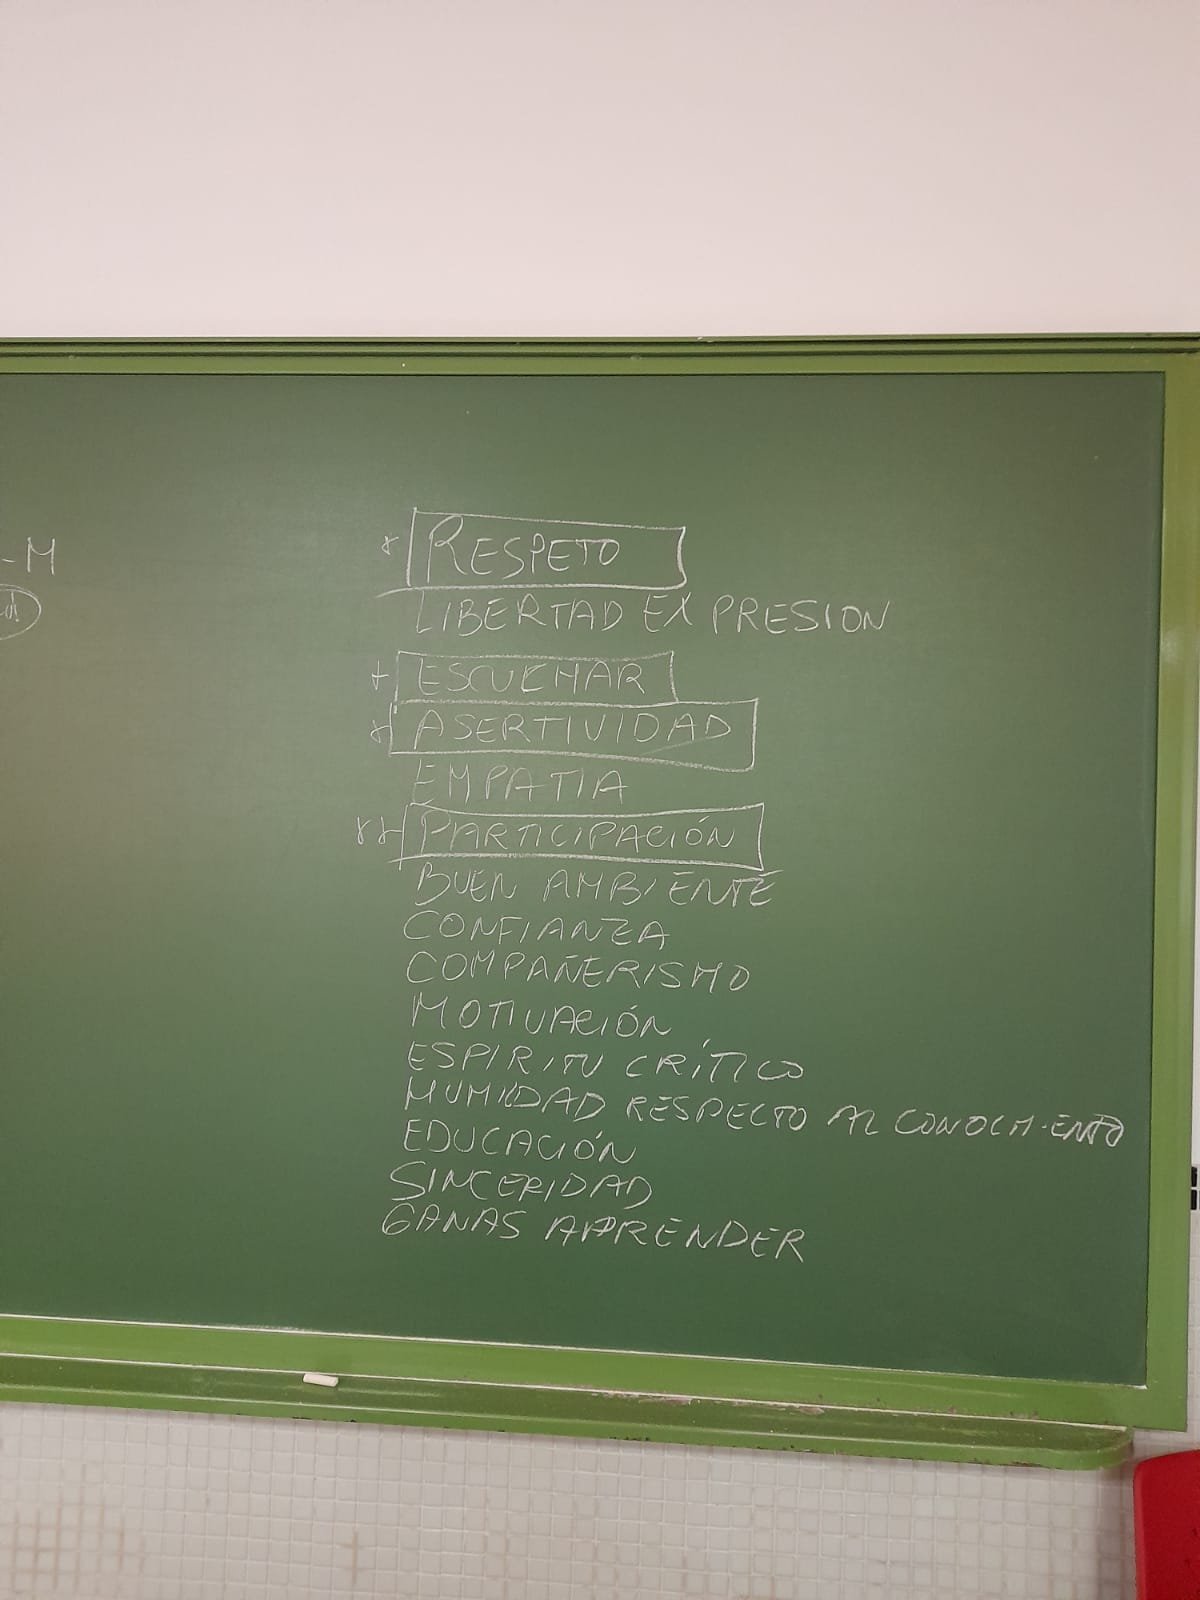 -M
* RESPETO
LIBERTAD EXPRESION
+ ESCUCHAR
* ASERTIVIDAD
EMPATIA
** PARTICIPACIÓN
BUEN AMBIENTE
CONFIANZA
COMPAÑERISMO
MOTIVACIÓN
ESPIRITU CRÍTICO
HUMILDAD RESPECTO AL CONOCIMIENTO
EDUCACIÓN
SINCERIDAD
GANAS APRENDER